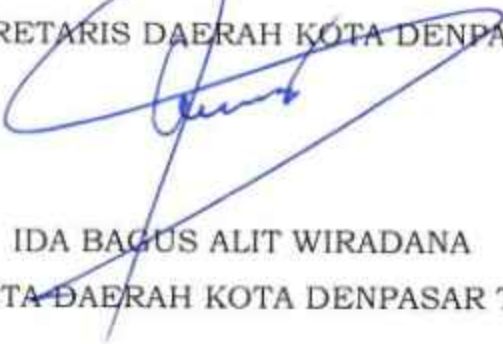 RETARIS DAERAH KOTA DENPA
IDA BAGUS ALIT WIRADANA
TA DAERAH KOTA DENPASAR T